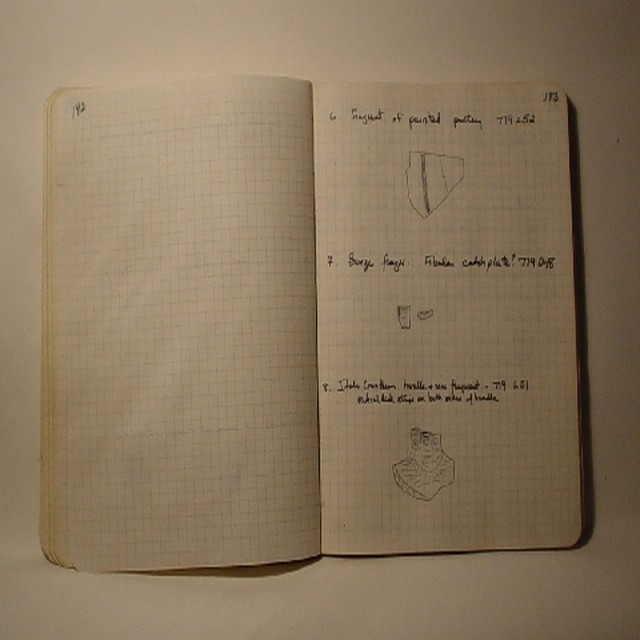 192
193
6. Fragment of painted pottery T19 L52
7. Bronze fragm. Fibula catchplate? T19
8. Corinthian handle + rim fragment - T19 L51
on both sides of handle